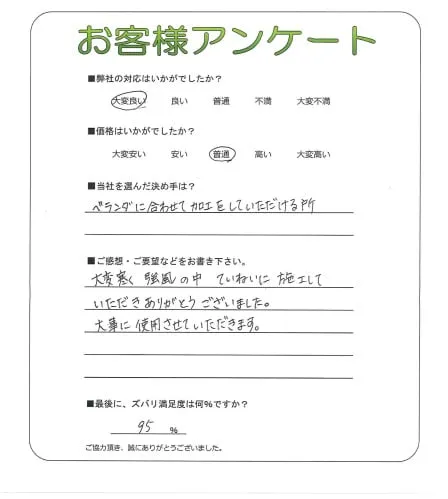 お客様アンケート
■弊社の対応はいかがでしたか？
大変良い 良い 普通 不満 大変不満
■価格はいかがでしたか？
大変安い 安い 普通 高い 大変高い
■当社を選んだ決め手は？
ベランダに合わせて加工をしていただける所
■ご感想・ご要望などをお書き下さい。
大変寒く 強風の中 ていねいに 施工して
いただきありがとうございました。
大事に使用させていただきます。
■最後に、ズバリ満足度は何%ですか？
95 %
ご協力頂き、誠にありがとうございました。